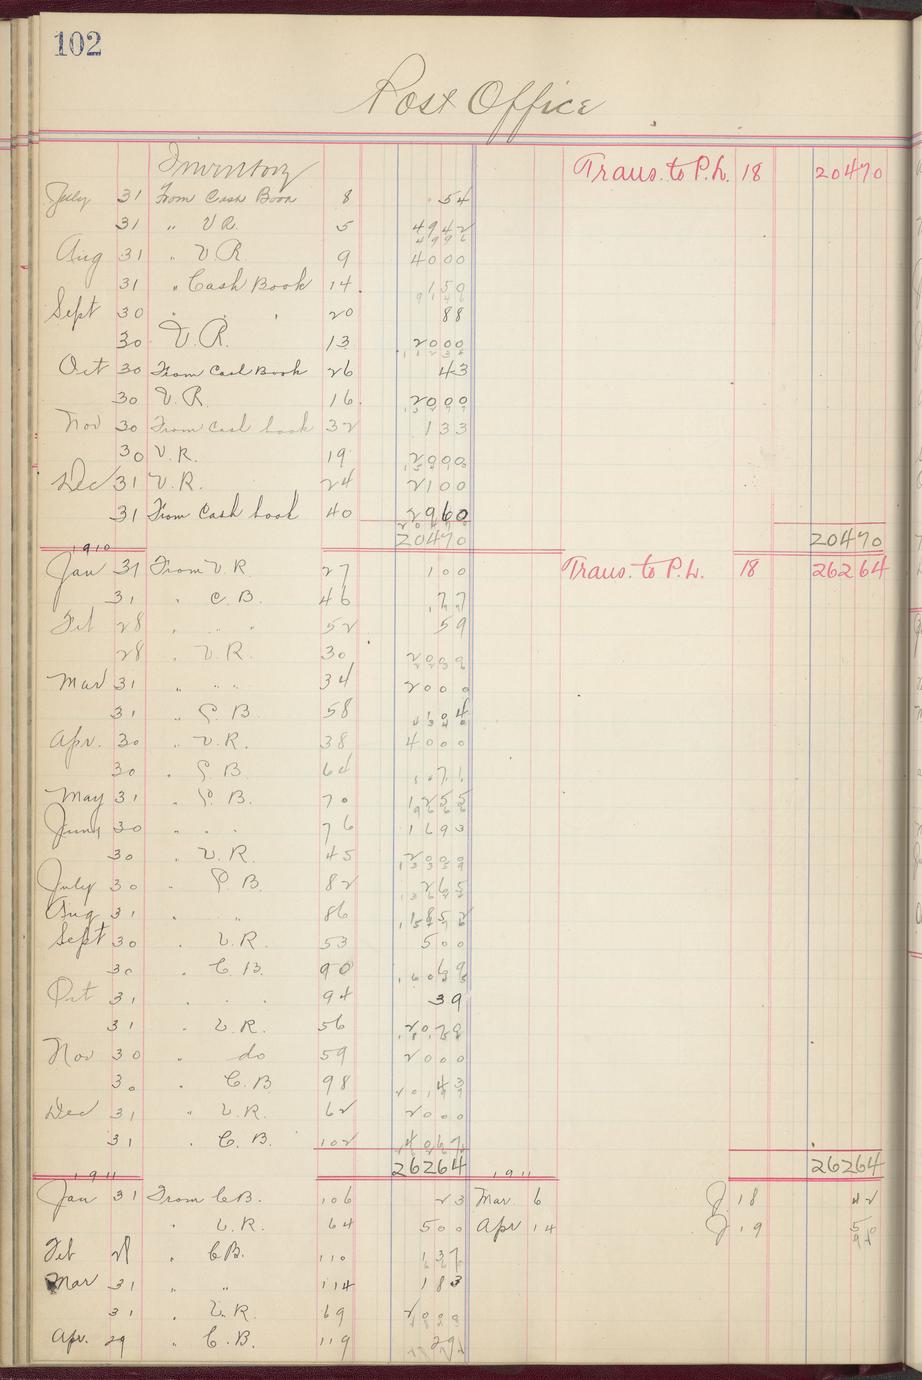 102
Post Office
Inventory Trans. to P.L. 18 20470
July 31 From Cash Book 8 54
31 " V R. 5 4942
Aug 31 " V R. 9 4000
31 " Cash Book 14 150
Sept 30 " " 20 88
30 V. R. 13 2000
Oct 30 From Cash Book 26 43
30 V. R. 16 2000
Nov 30 From Cash book 32 133
30 V. R. 19 2000
Dec 31 V. R. 24 2100
31 From Cash book 40 2960
20470 20470
1910
Jan 31 From V R 27 100 Trans. to P. L. 18 26264
31 " C. B. 46 77
Feb 28 " " " 52 59
28 " V. R. 30
Mar 31 " " " 34 2000
31 " C. B. 58 104
Apr. 30 " V. R. 38 4000
30 " C. B. 64 1071
May 31 " C. B. 70 1255
June 30 " " " 76 1693
30 " V. R. 45 2000
July 30 " C. B. 82 265
Aug 31 " " 86 1852
Sept 30 " V. R. 53 500
30 " C. B. 90
Oct 31 " " 94 39
31 " V. R. 56
Nov 30 " do 59 2000
30 " C. B. 98 43
Dec 31 " V. R. 62 2000
31 " C. B. 102 4067
26264 26264
1911 1911
Jan 31 From C B. 106 23 Mar. 6 J 18 42
" V. R. 64 500 Apr 14 J 19
Feb 28 " C B. 110 137
Mar 31 " " 114 183
31 " V. R. 69
Apr. 29 " C. B. 119